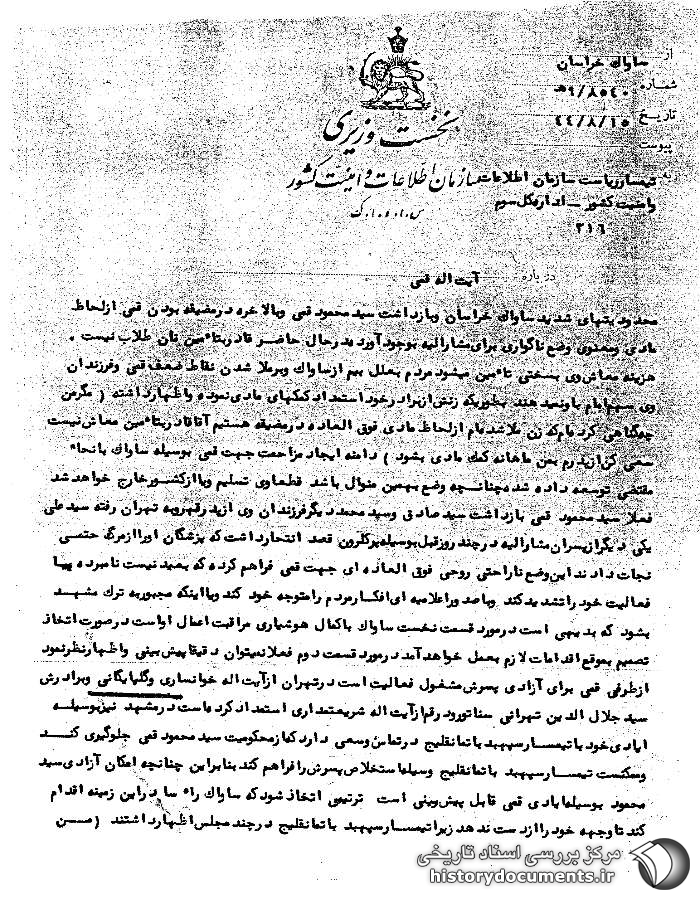 از ساواک خراسان
شماره ۹/۸۵۴۰ه‍
تاریخ ۴۴/۸/۱۵
پیوست
نخست وزیری
سازمان اطلاعات و امنیت کشور
س.ا.و.ا.ک
به تیمسار ریاست سازمان اطلاعات
و امنیت کشور ــ اداره کل سوم
۳۱۶
درباره آیت اله قمی
محدودیتهای شدید ساواک خراسان و بازداشت سید محمود قمی و بالاخره در مضیقه بودن قمی از لحاظ
مادی و معنوی وضع ناگواری برای مشارالیه بوجود آورده در حال حاضر قادر بتأمین نان طلاب نیست .
هزینه معاش وی بسختی تأمین میشود مردم بعلل بیم از ساواک و برملا شدن نقاط ضعف قمی و فرزندان
وی سهم امام باو نمیدهند بطوریکه زنش از برادر خود استعداد کمکهای مادی نموده و اظهار داشته ( مگر من
چه گناهی کرده ام که زن ملا شده ام از لحاظ مادی فوق العاده در مضیقه هستیم آقا قادر بتأمین معاش نیست
سعی کن از پدرم بمن ماهانه کمک مادی بشود ) دامنه ایجاد مزاحمت جهت قمی بوسیله ساواک بانحاء
مقتضی توسعه داده شده چنانچه وضع بهمین منوال باشد قطعاوی تسلیم و یا از کشور خارج خواهد شد
فعلا سید محمود قمی بازداشت سید صادق و سید محمد دیگر فرزندان وی از پدر قهر و به تهران رفته سید علی
یکی دیگر از پسران مشارالیه در چند روز قبل بوسیله پرکلرون قصد انتحار داشت که پزشکان او را از مرگ حتمی
نجات دادند این وضع ناراحتی روحی فوق العاده ای جهت قمی فراهم کرده که بعید نیست نامبرده یا به
فعالیت خود را تشدید کند و با صدور اعلامیه ای افکار مردم را متوجه خود کند و یا اینکه مجبور به ترک مشهد
بشود که بدیهی است در مورد قسمت نخست ساواک با کمال هوشیاری مراقبت اعمال او است در صورت اتخاذ
تصمیم بموقع اقدامات لازم بعمل خواهد آمد در مورد قسمت دوم فعلا نمیتوان دقیقا پیش بینی و اظهارنظر نمود
از طرفی قمی برای آزادی پسرش مشغول فعالیت است در تهران از آیت اله خوانساری و گلپایگانی و برادرش
سید جلال الدین تهرانی سناتور و در قم از آیت اله شریعتمداری استمداد کرده است در مشهد نیز بوسیله
ایادی خود با تیمسار سپهبد باتمانقلیج در تماس وسیعی دارد که از محکومیت سید محمود قمی جلوگیری کند
و ممکنست تیمسار سپهبد باتمانقلیج وسیله استخلاص پسرش را فراهم کند بنابراین چنانچه امکان آزادی سید
محمود بوسیله ایادی قمی قابل پیش بینی است ترتیبی اتخاذ شود که ساواک رأسا در این زمینه اقدام
کند تا وجهه خود را از دست ندهد زیرا تیمسار سپهبد باتمانقلیج در چند مجلس اظهار داشتند ( مــن
مرکز بررسی اسناد تاریخی
historydocuments.ir